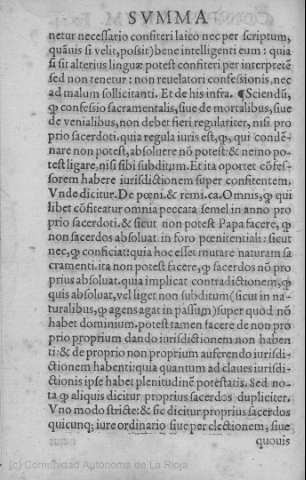 SVMMA
netur necessario confiteri laico nec per scriptum,
quāuis si velit, possit) bene intelligenti eum: quia
si sit alterius linguæ potest confiteri per interpretē
sed non tenetur: non reuelatori confessionis, nec
ad malum sollicitanti. Et de his infra. ¶Sciendū,
ꝙ confessio sacramentalis, siue de mortalibus, siue
de venialibus, non debet fieri regulariter, nisi pro
prio sacerdoti. quia regula iuris est, ꝙ, qui condē-
nare non potest, absoluere nō potest: & nemo po-
test ligare, nisi sibi subditum. Et ita oportet cōfes-
sorem habere iurisdictionem super confitentem.
Vnde dicitur. De pœni. & remi. ca. Omnis, ꝙ qui
libet cōfiteatur omnia peccata semel in anno pro
prio sacerdoti. & sicut non potest Papa facere, ꝙ
non sacerdos absoluat in foro pœnitentiali: sicut
nec, ꝙ conficiat: quia hoc esset mutare naturam sa
cramenti. ita non potest facere, ꝙ sacerdos nō pro
prius absoluat. quia implicat contradictionem, ꝙ
quis absoluat, vel liget non subditum (sicut in na-
turalibus, ꝙ agens agat in passum) super quod nō
habet dominium. potest tamen facere de non pro
prio proprium dando iurisdictionem non haben
ti: & de proprio non proprium auferendo iurisdi-
ctionem habenti: quia quantum ad claues iurisdi-
ctionis ipse habet plenitudinē potestatis. Sed no-
ta ꝙ aliquis dicitur proprius sacerdos dupliciter.
Vno modo stricte: & sic dicitur proprius sacerdos
quicunq; iure ordinario siue per electionem, siue
quouis
(c) Comunidad Autónoma de La Rioja